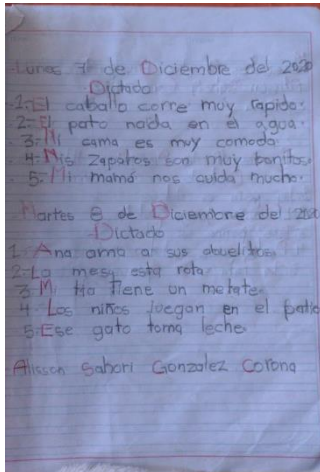 Lunes 7 de Diciembre del 2020
Dictado
1-El caballo corre muy rapido.
2-El pato naida en el agua.
3-Mi cama es muy comoda
4-Mis zapatos son muy bonitos.
5-Mi mamá nos cuida mucho.
Martes 8 de Diciembre del 2020
Dictado
1 Ana ama a sus abuelitos.
2-La mesa esta rota.
3 Mi tio tiene un metate.
4 Los niños juegan en el patio
5-Ese gato toma leche.
Alisson Sahori Gonzalez Corona